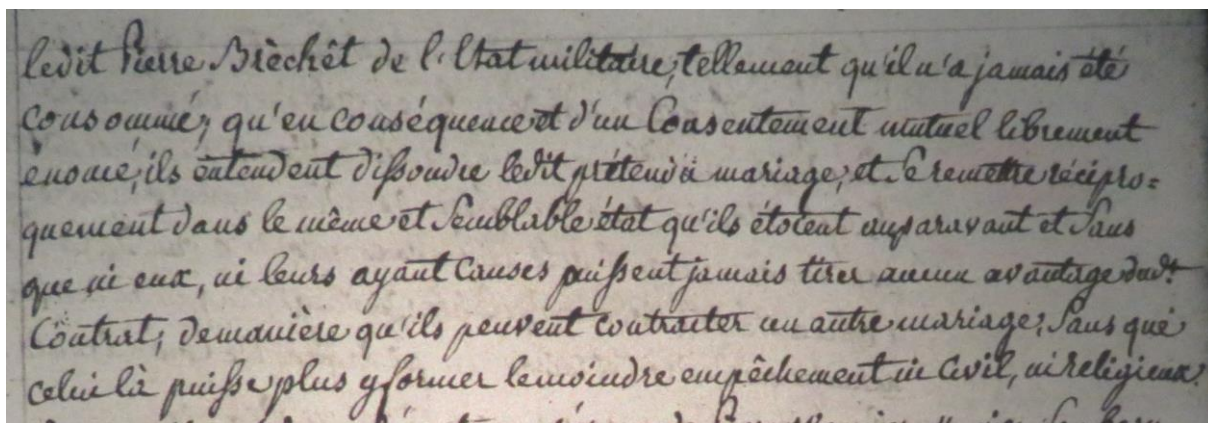 ledit Pierre Brèchêt de l'Etat militaire, tellement qu'il n'a jamais été
consommé; qu'en conséquence et d'un Consentement mutuel librement
énoncé, ils entendent dissoudre ledit prétendu mariage, et se remettre récipro=
quement dans le même et semblable état qu'ils étoient auparavant et sans
que ni eux, ni leurs ayant causes puissent jamais tirer aucun avantage dud.t
Contrat; de manière qu'ils peuvent contracter un autre mariage, sans que
celui là puisse plus y former le moindre empêchement ni civil, ni religieux.